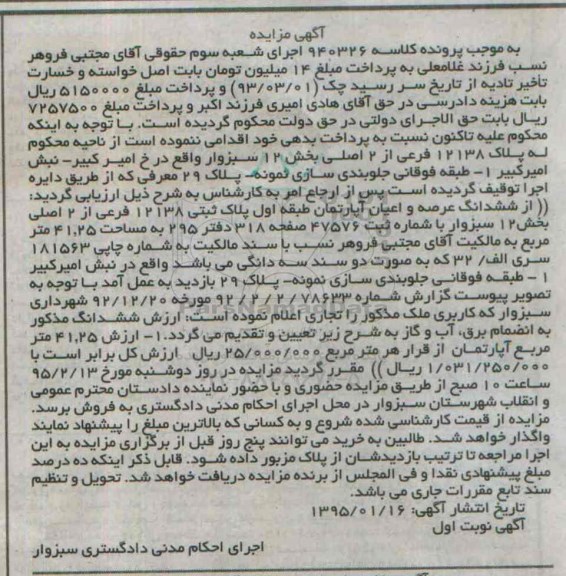 آگهی مزایده
به موجب پرونده کلاسه ۹۴۰۳۲۶ اجرای شعبه سوم حقوقی آقای مجتبی فروهر
نسب فرزند غلامعلی به پرداخت مبلغ ۱۴ میلیون تومان بابت اصل خواسته و خسارت
تأخیر تادیه از تاریخ سر رسید چک (۹۳/۰۳/۰۱) و پرداخت مبلغ ۵۱۵۰۰۰۰ ریال
بابت هزینه دادرسی در حق آقای هادی امیری فرزند اکبر و پرداخت مبلغ ۷۲۵۷۵۰۰
ریال بابت حق الاجرای دولتی در حق دولت محکوم گردیده است. با توجه به اینکه
محکوم علیه تاکنون نسبت به پرداخت بدهی خود اقدامی ننموده است از ناحیه محکوم
له پلاک ۱۲۱۳۸ فرعی از ۲ اصلی بخش ۱۲ سبزوار واقع در خ امیر کبیر- نبش
امیرکبیر ۱- طبقه فوقانی جلوبندی سازی نمونه- پلاک ۲۹ معرفی که از طریق دایره
اجرا توقیف گردیده است پس از ارجاع امر به کارشناس به شرح ذیل ارزیابی گردید:
(( از ششدانگ عرصه و اعیان آپارتمان طبقه اول پلاک ثبتی ۱۲۱۳۸ فرعی از ۲ اصلی
بخش۱۲ سبزوار با شماره ثبت ۴۷۵۷۶ صفحه ۳۱۸ دفتر ۲۹۵ به مساحت ۴۱,۲۵ متر
مربع به مالکیت آقای مجتبی فروهر نسب با سند مالکیت به شماره چاپی ۱۸۱۵۶۳
سری الف/ ۳۲ که به صورت دو سند سه دانگی می باشد واقع در نبش امیرکبیر
۱ - طبقه فوقانی جلوبندی سازی نمونه- پلاک ۲۹ بازدید به عمل آمد با توجه به
تصویر پیوست گزارش شماره ۷۸۶۳۳ / ۲ / ۲ / ۹۲ مورخه ۹۲/۱۲/۲۰ شهرداری
سبزوار که کاربری ملک مذکور را تجاری اعلام نموده است: ارزش ششدانگ مذکور
به انضمام برق، آب و گاز به شرح زیر تعیین و تقدیم می گردد.۱- ارزش ۴۱,۲۵ متر
مربع آپارتمان از قرار هر متر مربع ۲۵/۰۰۰/۰۰۰ ریال ارزش کل برابر است با
۱/۰۳۱/۲۵۰/۰۰۰ ریال )) مقرر گردید مزایده در روز دوشنبه مورخ ۹۵/۲/۱۳
ساعت ۱۰ صبح از طریق مزایده حضوری و با حضور نماینده دادستان محترم عمومی
و انقلاب شهرستان سبزوار در محل اجرای احکام مدنی دادگستری به فروش برسد.
مزایده از قیمت کارشناسی شده شروع و به کسانی که بالاترین مبلغ را پیشنهاد نمایند
واگذار خواهد شد. طالبین به خرید می توانند پنج روز قبل از برگزاری مزایده به این
اجرا مراجعه تا ترتیب بازدیدشان از پلاک مزبور داده شود. قابل ذکر اینکه ده درصد
مبلغ پیشنهادی نقدا و فی المجلس از برنده مزایده دریافت خواهد شد. تحویل و تنظیم
سند تابع مقررات جاری می باشد.
تاریخ انتشار آگهی: ۱۳۹۵/۰۱/۱۶
آگهی نوبت اول
اجرای احکام مدنی دادگستری سبزوار